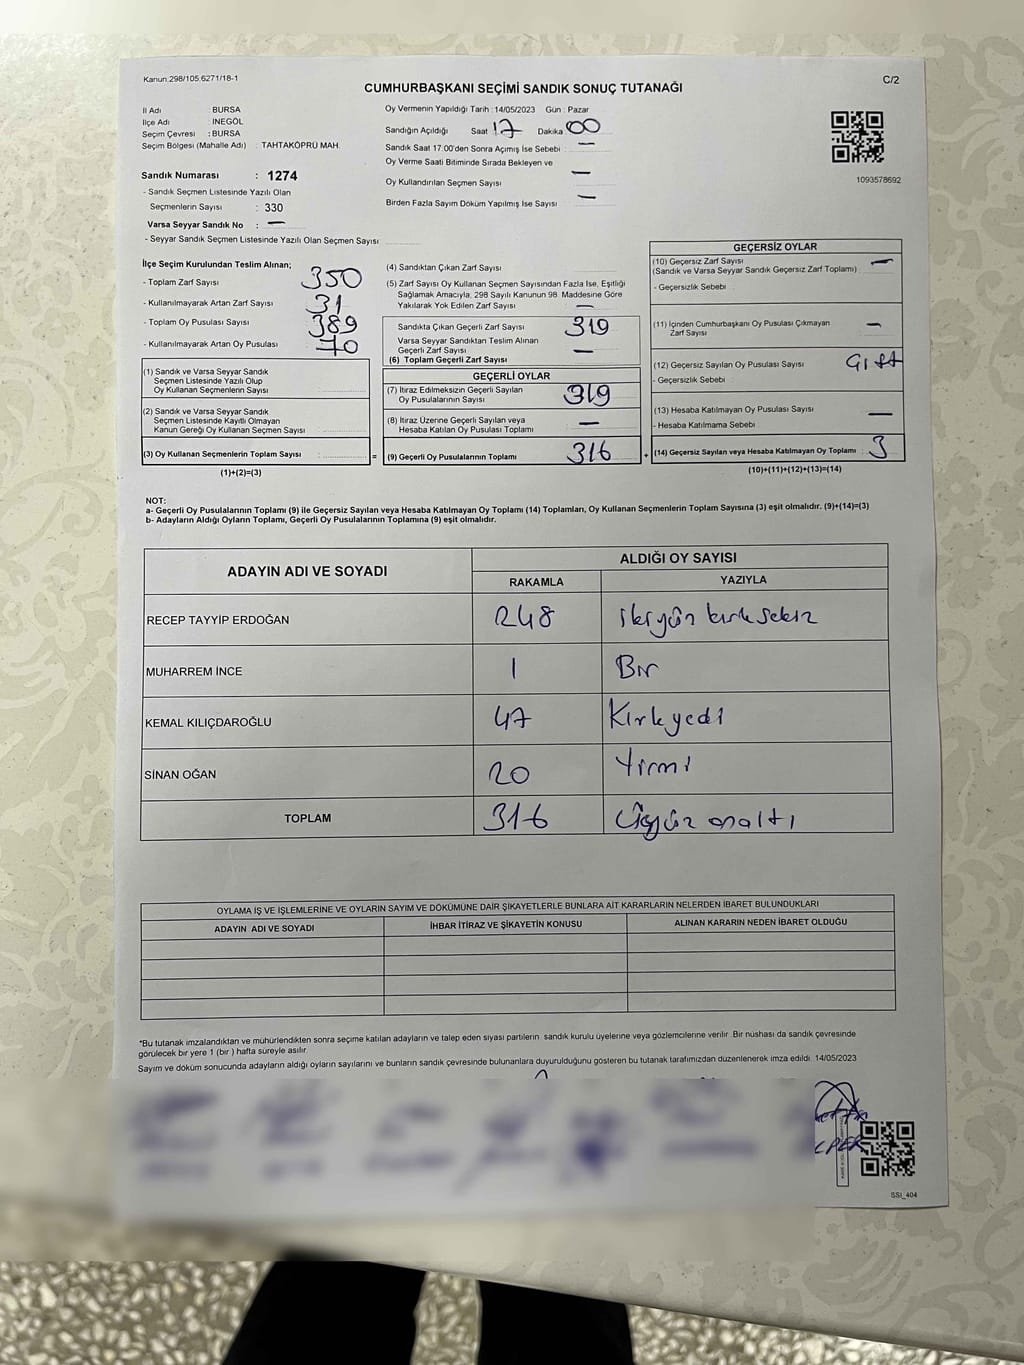 Kanun:298/105,6271/18-1
C/2
CUMHURBAŞKANI SEÇİMİ SANDIK SONUÇ TUTANAĞI
İl Adı : BURSA
İlçe Adı : İNEGÖL
Seçim Çevresi : BURSA
Seçim Bölgesi (Mahalle Adı) : TAHTAKÖPRÜ MAH.
Oy Vermenin Yapıldığı Tarih :14/05/2023 Gün : Pazar
Sandığın Açıldığı Saat 17 Dakika 00
Sandık Saat 17:00'den Sonra Açımış İse Sebebi : —
Oy Verme Saati Bitiminde Sırada Bekleyen ve
Oy Kullandırılan Seçmen Sayısı —
Birden Fazla Sayım Döküm Yapılmış İse Sayısı : —
1093578692
Sandık Numarası : 1274
- Sandık Seçmen Listesinde Yazılı Olan
Seçmenlerin Sayısı : 330
Varsa Seyyar Sandık No : —
- Seyyar Sandık Seçmen Listesinde Yazılı Olan Seçmen Sayısı
İlçe Seçim Kurulundan Teslim Alınan;
- Toplam Zarf Sayısı : 350
- Kullanılmayarak Artan Zarf Sayısı : 31
- Toplam Oy Pusulası Sayısı : 389
- Kullanılmayarak Artan Oy Pusulası : 70
(1) Sandık ve Varsa Seyyar Sandık
Seçmen Listesinde Yazılı Olup
Oy Kullanan Seçmenlerin Sayısı
(2) Sandık ve Varsa Seyyar Sandık
Seçmen Listesinde Kayıtlı Olmayan
Kanun Gereği Oy Kullanan Seçmen Sayısı
(3) Oy Kullanan Seçmenlerin Toplam Sayısı : =
(1)+(2)=(3)
(4) Sandıktan Çıkan Zarf Sayısı
(5) Zarf Sayısı Oy Kullanan Seçmen Sayısından Fazla İse, Eşitliği
Sağlamak Amacıyla, 298 Sayılı Kanunun 98. Maddesine Göre
Yakılarak Yok Edilen Zarf Sayısı : —
Sandıkta Çıkan Geçerli Zarf Sayısı 319
Varsa Seyyar Sandıktan Teslim Alınan
Geçerli Zarf Sayısı —
(6) Toplam Geçerli Zarf Sayısı
GEÇERLİ OYLAR
(7) İtiraz Edilmeksizin Geçerli Sayılan
Oy Pusulalarının Sayısı 319
(8) İtiraz Üzerine Geçerli Sayılan veya
Hesaba Katılan Oy Pusulası Toplamı —
(9) Geçerli Oy Pusulalarının Toplamı 316 +
GEÇERSİZ OYLAR
(10) Geçersiz Zarf Sayısı —
(Sandık ve Varsa Seyyar Sandık Geçersiz Zarf Toplamı)
- Geçersizlik Sebebi
(11) İçinden Cumhurbaşkanı Oy Pusulası Çıkmayan
Zarf Sayısı —
(12) Geçersiz Sayılan Oy Pusulası Sayısı : Gift
- Geçersizlik Sebebi
(13) Hesaba Katılmayan Oy Pusulası Sayısı —
- Hesaba Katılmama Sebebi
(14) Geçersiz Sayılan veya Hesaba Katılmayan Oy Toplamı : 3
(10)+(11)+(12)+(13)=(14)
NOT:
a- Geçerli Oy Pusulalarının Toplamı (9) ile Geçersiz Sayılan veya Hesaba Katılmayan Oy Toplamı (14) Toplamları, Oy Kullanan Seçmenlerin Toplam Sayısına (3) eşit olmalıdır. (9)+(14)=(3)
b- Adayların Aldığı Oyların Toplamı, Geçerli Oy Pusulalarının Toplamına (9) eşit olmalıdır.
ADAYIN ADI VE SOYADI
ALDIĞI OY SAYISI
RAKAMLA YAZIYLA
RECEP TAYYİP ERDOĞAN 248 ikiyüz kırksekiz
MUHARREM İNCE 1 Bir
KEMAL KILIÇDAROĞLU 47 Kırkyedi
SİNAN OĞAN 20 Yirmi
TOPLAM 316 Üçyüz onaltı
OYLAMA İŞ VE İŞLEMLERİNE VE OYLARIN SAYIM VE DÖKÜMÜNE DAİR ŞİKAYETLERLE BUNLARA AİT KARARLARIN NELERDEN İBARET BULUNDUKLARI
ADAYIN ADI VE SOYADI İHBAR İTİRAZ VE ŞİKAYETİN KONUSU ALINAN KARARIN NEDEN İBARET OLDUĞU
*Bu tutanak imzalandıktan ve mühürlendikten sonra seçime katılan adayların ve talep eden siyasi partilerin sandık kurulu üyelerine veya gözlemcilerine verilir. Bir nüshası da sandık çevresinde
görülecek bir yere 1 (bir ) hafta süreyle asılır.
Sayım ve döküm sonucunda adayların aldığı oyların sayılarını ve bunların sandık çevresinde bulunanlara duyurulduğunu gösteren bu tutanak tarafımızdan düzenlenerek imza edildi. 14/05/2023
SSİ_404